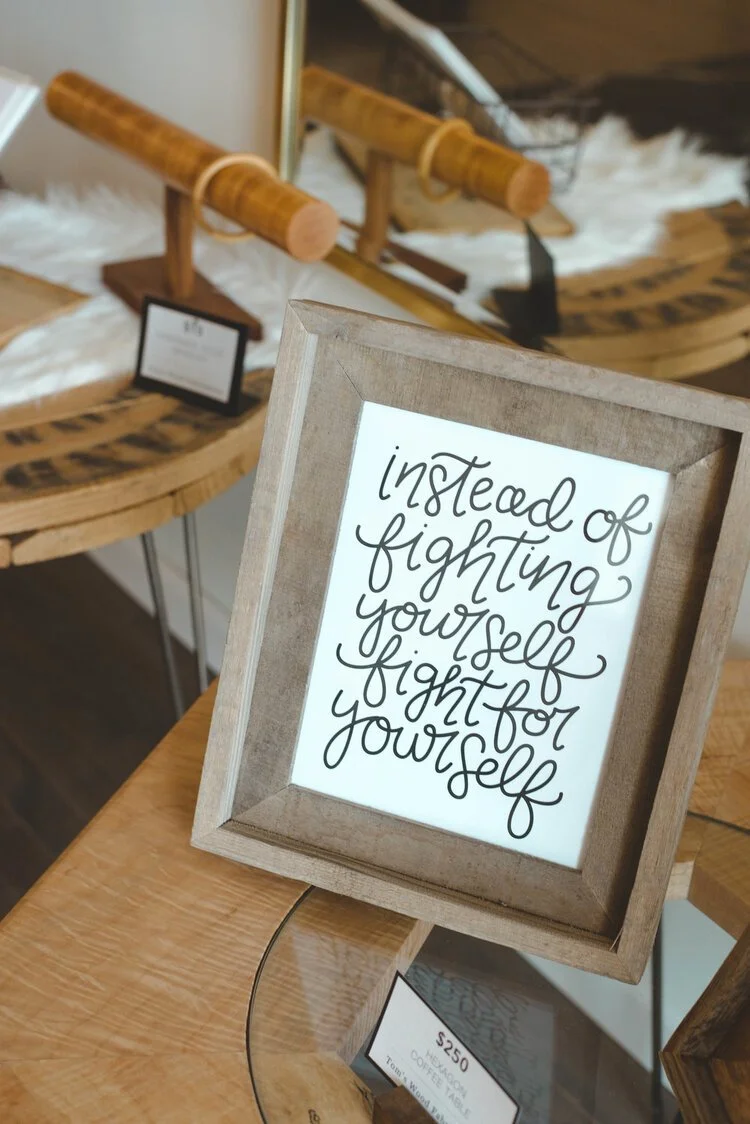 instead of
fighting
yourself
fight for
yourself
$250
HEXAGON
COFFEE TABLE
Tom's Wood